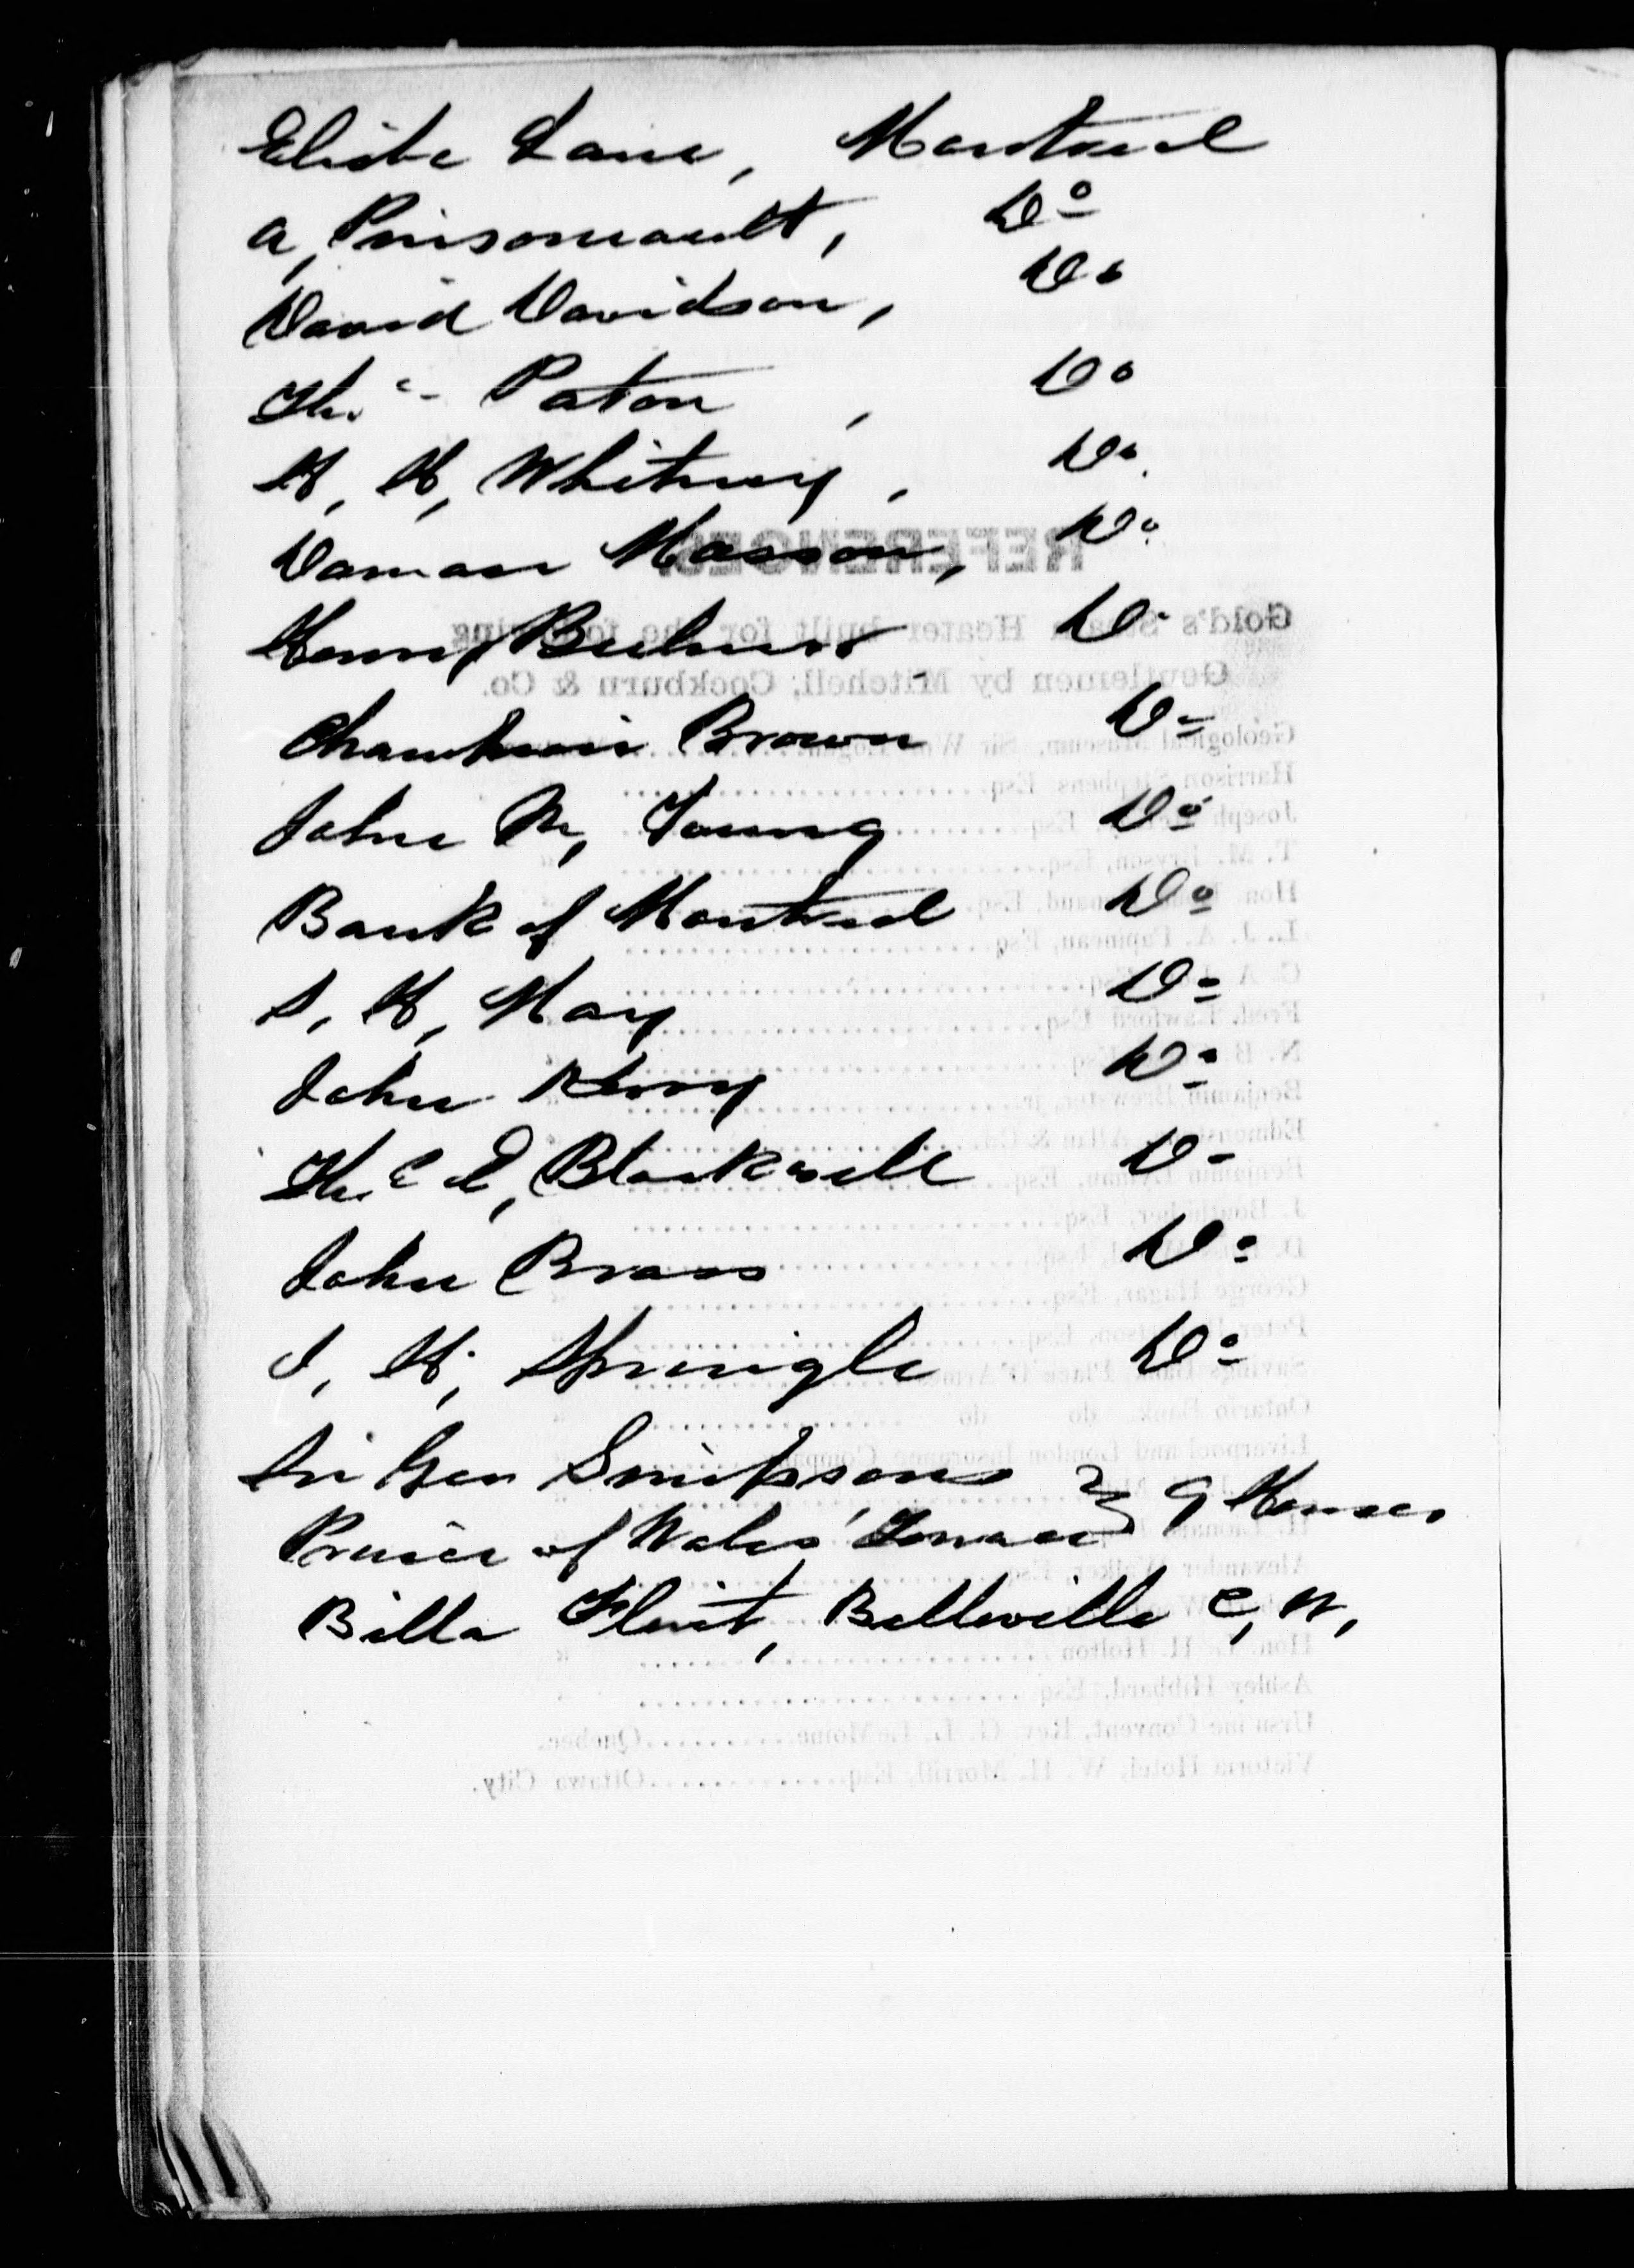 Elisha Lane, Montreal
A, Pinsoneault, Do
David Davidson, Do
Thos Paton, Do
H, H, Whitney, Do
Damase Masson, Do
Henry Bulmer Do
Champion Brown Do
John M, Young Do
Bank of Montreal Do
S, H, May Do
John Kerry Do
Thos E, Blackwell Do
John Brass Do
J, H, Springle Do
Sir Geo Simpsons
Prince of Wales' Terrace } 9 Houses
Billa Flint, Belleville C, W,
REFERENCES.
Gold's Steam Heater built for the following
Gentlemen by Mitchell, Cockburn & Co.
Geological Museum, Sir Wm. Logan
Harrison Stephens, Esq.
Joseph Esq.
T. M. Bryson, Esq.
Hon. Esq.
L. J. A. Papineau, Esq.
C. A.
Fred. Lawford Esq.
N. B. Esq.
Benjamin Brewster, jr.
Edmonstone, Allan & Co.
Benjamin Lyman, Esq.
J. Bouthillier, Esq.
D. Esq.
George Hagar, Esq.
Peter Esq.
Savings Bank, Place D'Armes
Ontario Bank, do do
Liverpool and London Insurance Company
Alexander Walker, Esq.
Hon. L. H. Holton
Ashley Hibbard, Esq.
Ursuline Convent, Rev. G. L. LeMoine..........Quebec.
Victoria Hotel, W. H. Morrill, Esq...............Ottawa City.